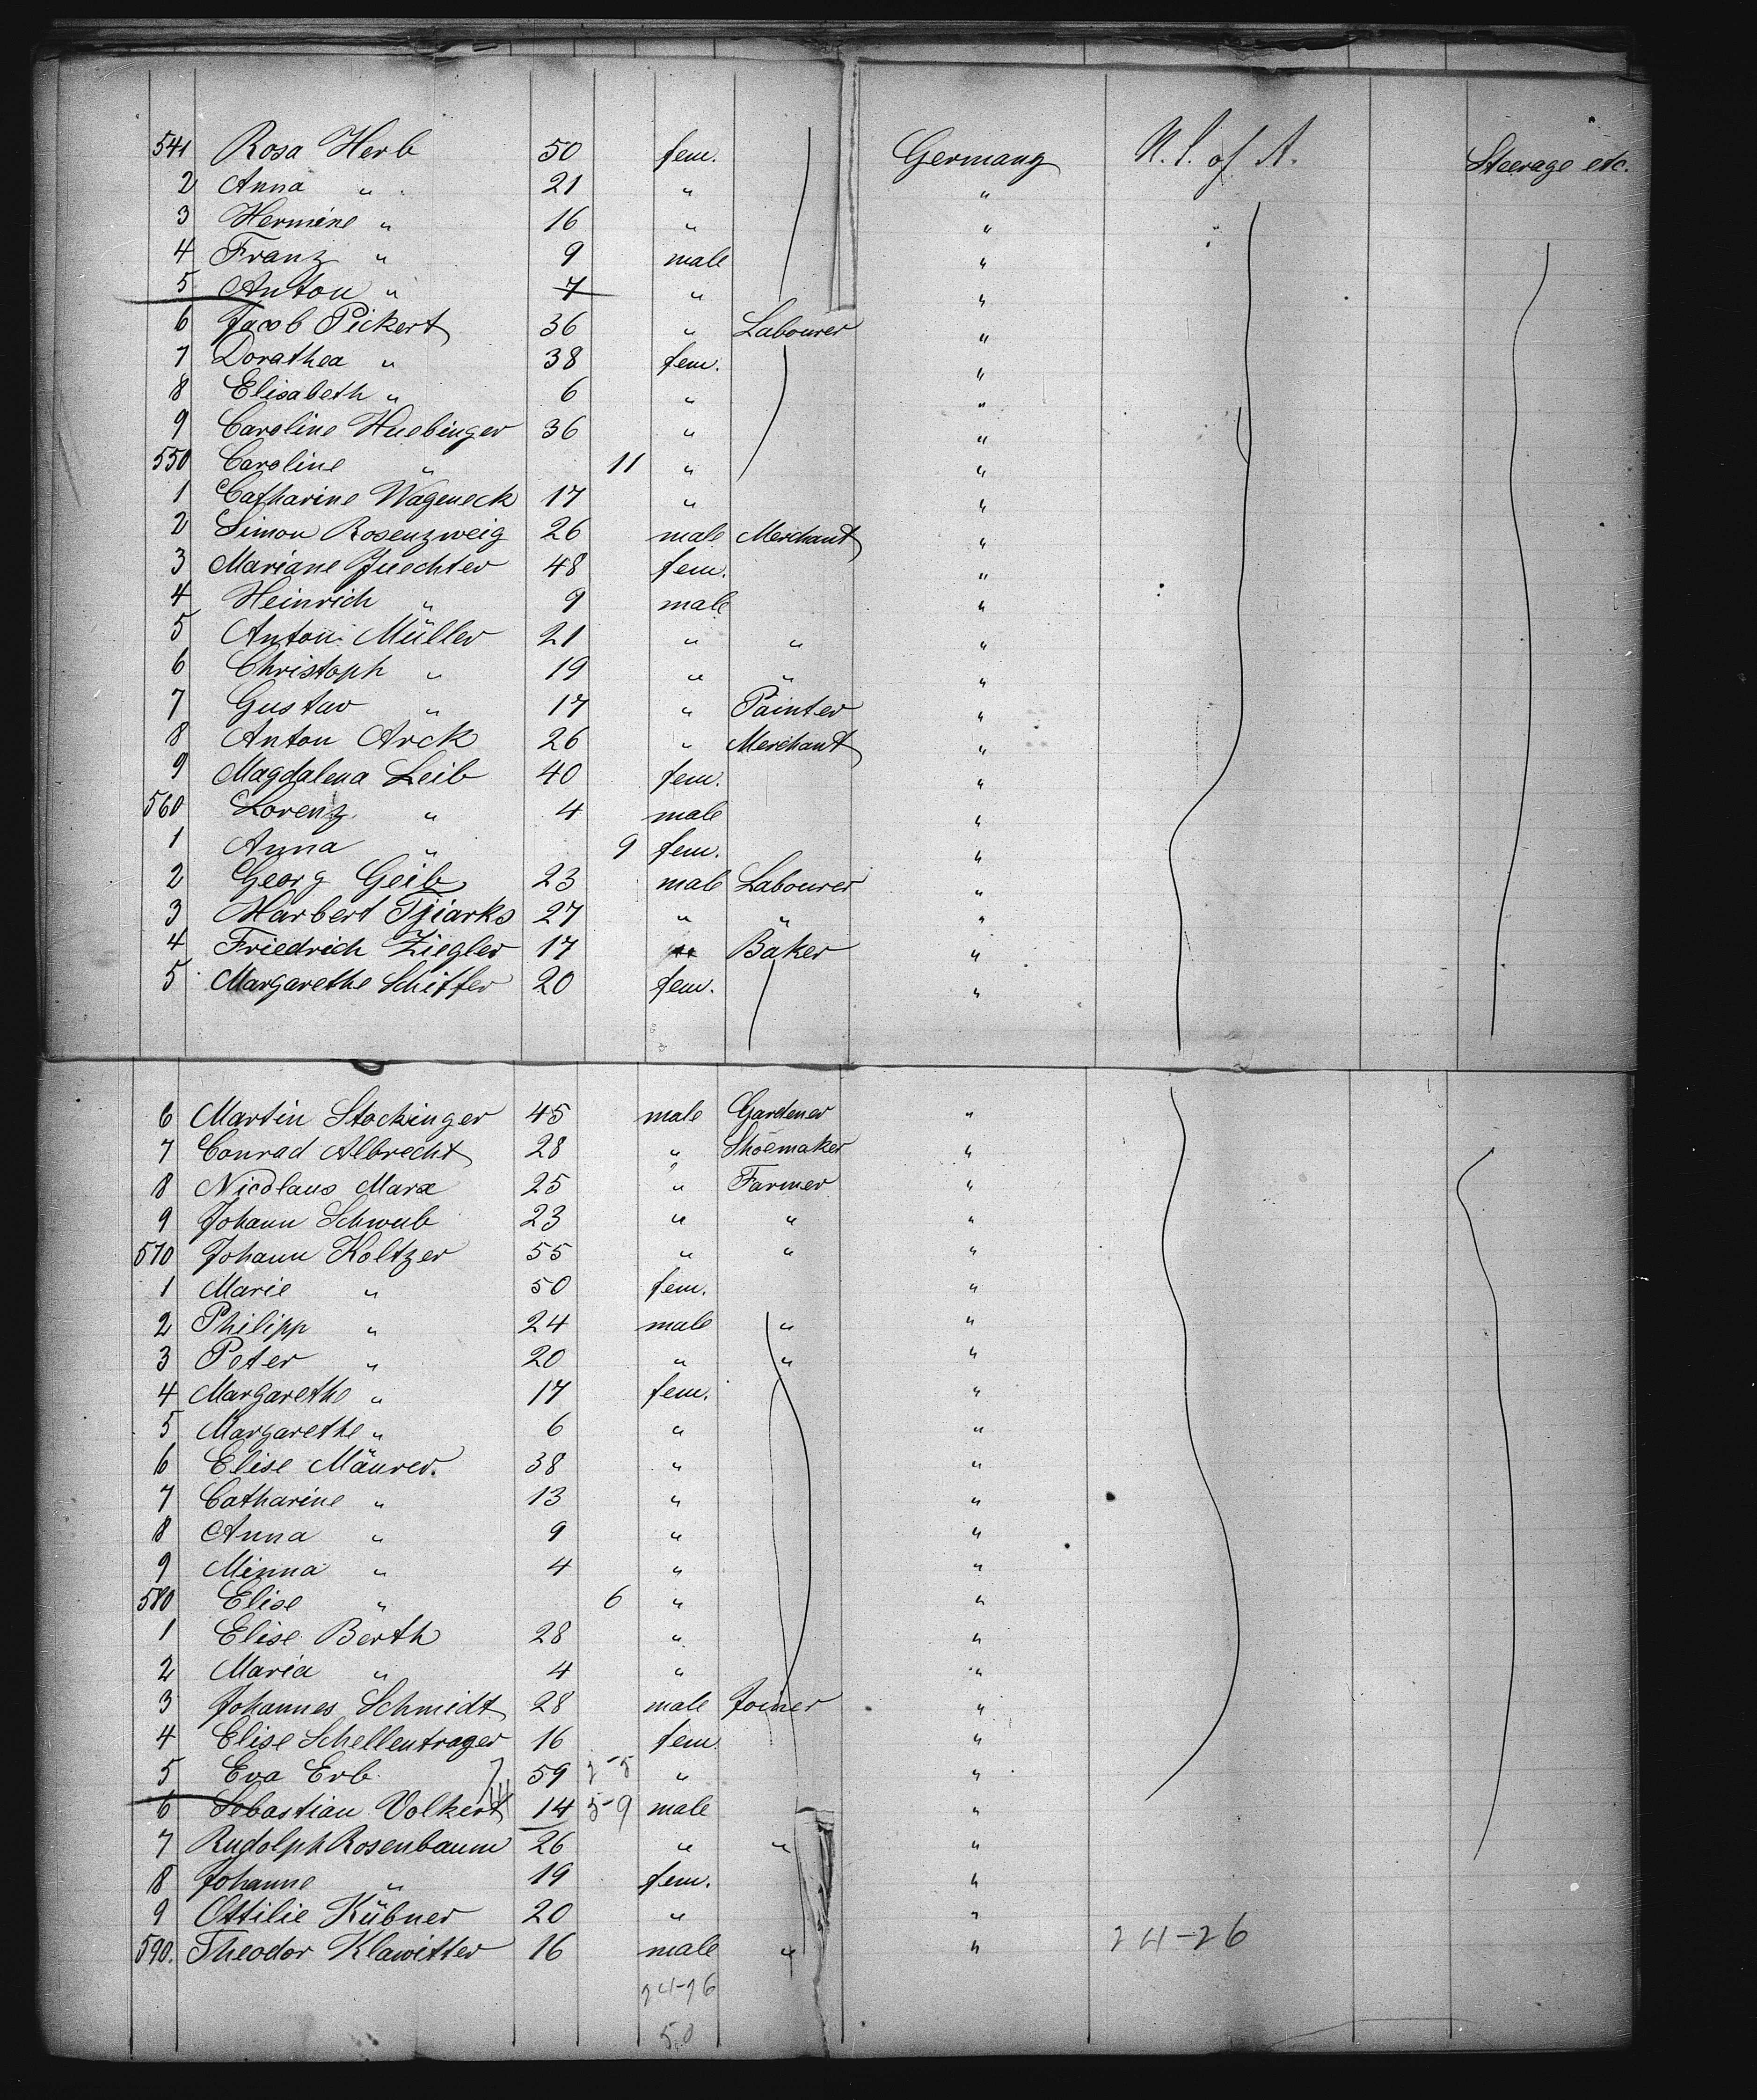 541 Rosa Herb 50 fem. Germany U.S. of A. Steerage etc.
2 Anna " 21 " "
3 Hermine " 16 " "
4 Franz " 9 male "
5 Anton " 7 " "
6 Jacob Pickert 36 " Labourer "
7 Dorathea " 38 fem. "
8 Elisabeth " 6 " "
9 Caroline Huebinger 36 " "
550 Caroline " 11 " "
1 Catharine Wageneck 17 " "
2 Simon Rosenzweig 26 male Merchant "
3 Mariane Juechter 48 fem. "
4 Heinrich " 9 male "
5 Anton Müller 21 " " "
6 Christoph " 19 " " "
7 Gustav " 17 " Painter "
8 Anton Arck 26 " Merchant "
9 Magdalena Leib 40 fem. "
560 Lorenz " 4 male "
1 Anna " 9 fem. "
2 Georg Geib 23 male Labourer "
3 Harbert Tjiarks 27 " " "
4 Friedrich Ziegler 17 " Baker "
5 Margarethe Schiffer 20 fem. "
6 Martin Stockinger 45 male Gardener "
7 Conrad Albrecht 28 " Shoemaker "
8 Nicolaus Marx 25 " Farmer "
9 Johann Schwab 23 " " "
570 Johann Koltzer 55 " " "
1 Marie " 50 fem. "
2 Philipp " 24 male " "
3 Peter " 20 " " "
4 Margarethe " 17 fem. "
5 Margarethe " 6 " "
6 Elise Mäurer. 38 " "
7 Catharine " 13 " "
8 Anna " 9 " "
9 Minna " 4 " "
580 Elise " 6 " "
1 Elise Berth 28 " "
2 Maria " 4 " "
3 Johannes Schmidt 28 male Joiner "
4 Elise Schellentrager 16 fem. "
5 Eva Erb 59 " "
6 Sebastian Volkert 14 5-9 male "
7 Rudolph Rosenbaum 26 " " "
8 Johanne " 19 fem. "
9 Ottilie Kübner 20 " "
590. Theodor Klawitter 16 male " " 24-26
24-26
50